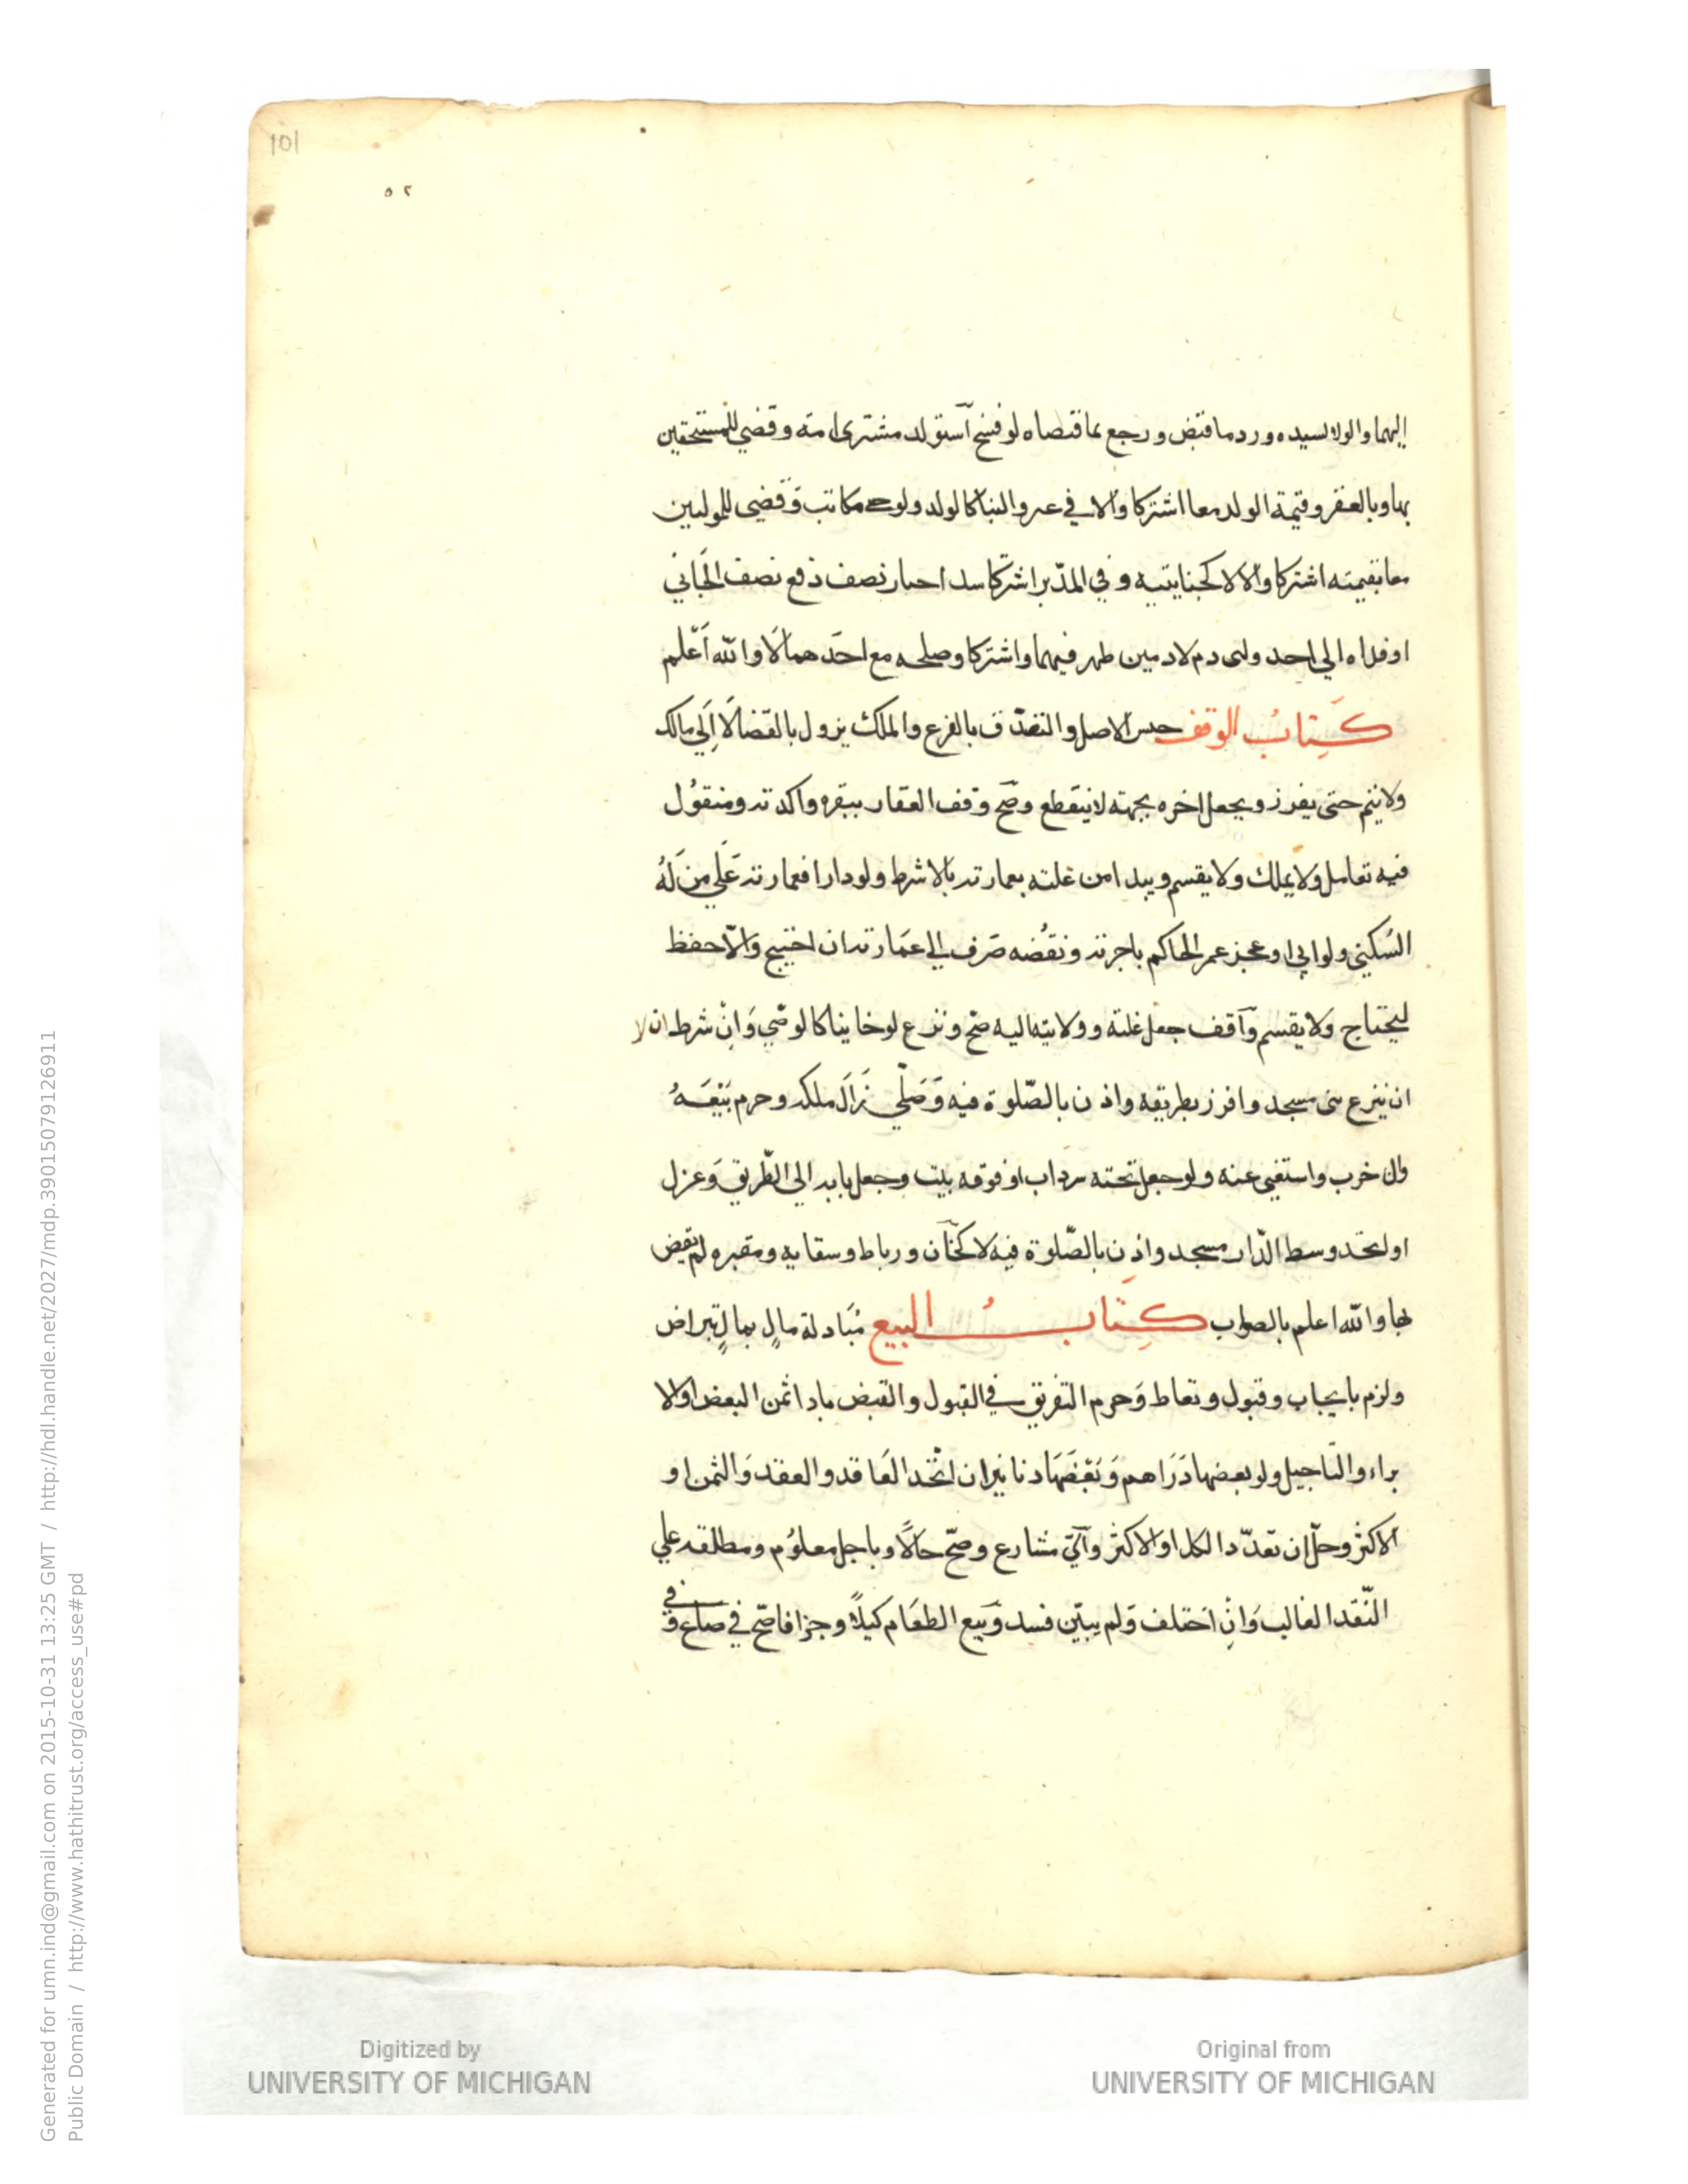 101
٥٢
اليهما والولا لسيده ورد ما قبض ورجع بما قتصاه لو فسخ استولد مشتري امة وقضي للمستحقين
بها وبالعقر وقيمة الولد معا اشتركا والا في عبر والبنا كالولد ولو مكاتب وقضي للوليين
معا بقيمته اشتركا والا لا كجنايتيه وفي المدبر اشتركا احبار نصف دفع نصف الجاني
او فداه الي احد ولى دم لادمين ظهر فيهما واشتركا وصلحه مع احدهما لا والله اعلم
كتاب الوقف حبس الاصل والتصدق بالفرع والملك يزول بالقضا لا الي مالك
ولا يتم حتى يفرز ويجعل اخره بجهة لا ينقطع وصح وقف العقار ببقره واكدته ومنقول
فيه تعامل ولا يملك ولا يقسم ويبدا من غلته بعمارته بلا شرط ولو دارا فعمارته علي من له
السكني ولو ابي او عجز عمر الحاكم باجرته ونقضه صرف الي عمارته ان احتيج والا حفظ
ليحتاج ولا يقسم واقف جعل غلته وولايته اليه صح ونزع لو خاينا كالوصي وان شرط ان لا
ان ينزع بنى مسجد وافرز بطريقه واذن بالصلوة فيه وصلي زال ملكه وحرم بيعه
وان خرب واستغنى عنه ولو جعل تحته سرداب او فوقه بيت وجعل بابه الى الطريق وعزل
او اتخذ وسط الدار مسجد واذن بالصلوة فيه لا كخان ورباط وسقايه ومقبره لم يقض
بها والله اعلم بالصواب كتاب البيع مبادلة مال بمال بتراض
ولزم بايجاب وقبول وتعاط وحرم التفريق في القبول والقبض باداثمن البعض او الا
براء والتاجيل ولو بعضها دراهم وبعضها دنانير ان اتخد العاقد والعقد والثمن او
الاكثر وحل ان تعدد الكل او الاكثر وآتي مشارع وصح حالا وباجل معلوم ومطلقه علي
النقد الغالب وان اختلف ولم يبين فسد وبيع الطعام كيلا وجزافا صح في صاع و
في
Digitized by
UNIVERSITY OF MICHIGAN
Original from
UNIVERSITY OF MICHIGAN
Generated for umn.ind@gmail.com on 2015-10-31 13:25 GMT / http://hdl.handle.net/2027/mdp.39015079126911
Public Domain / http://www.hathitrust.org/access_use#pd